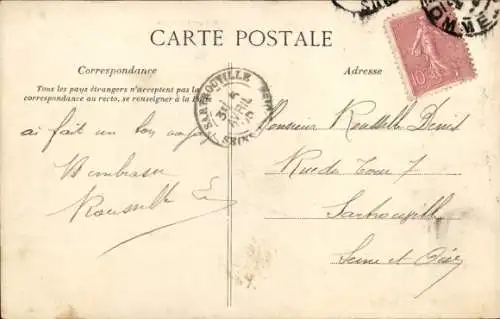 CARTE POSTALE
Correspondance
Adresse
Tous les pays étrangers n'acceptent pas la
correspondance au recto, se renseigner à la Poste
SARTROUVILLE
AVRIL
SEINE
10
OMME
ai fait un bon
Monsieur Rousselle Denis
Rue de 7
Sartrouville
Seine et Oise
Rousselle